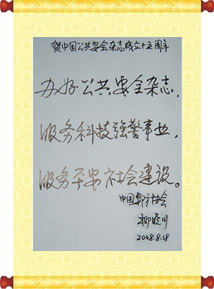 贺中国公共安全杂志成立十五周年
办好公共安全杂志,
服务科技强警事业,
服务平安社会建设。
中国安防协会
柳晓川
2008.8.18